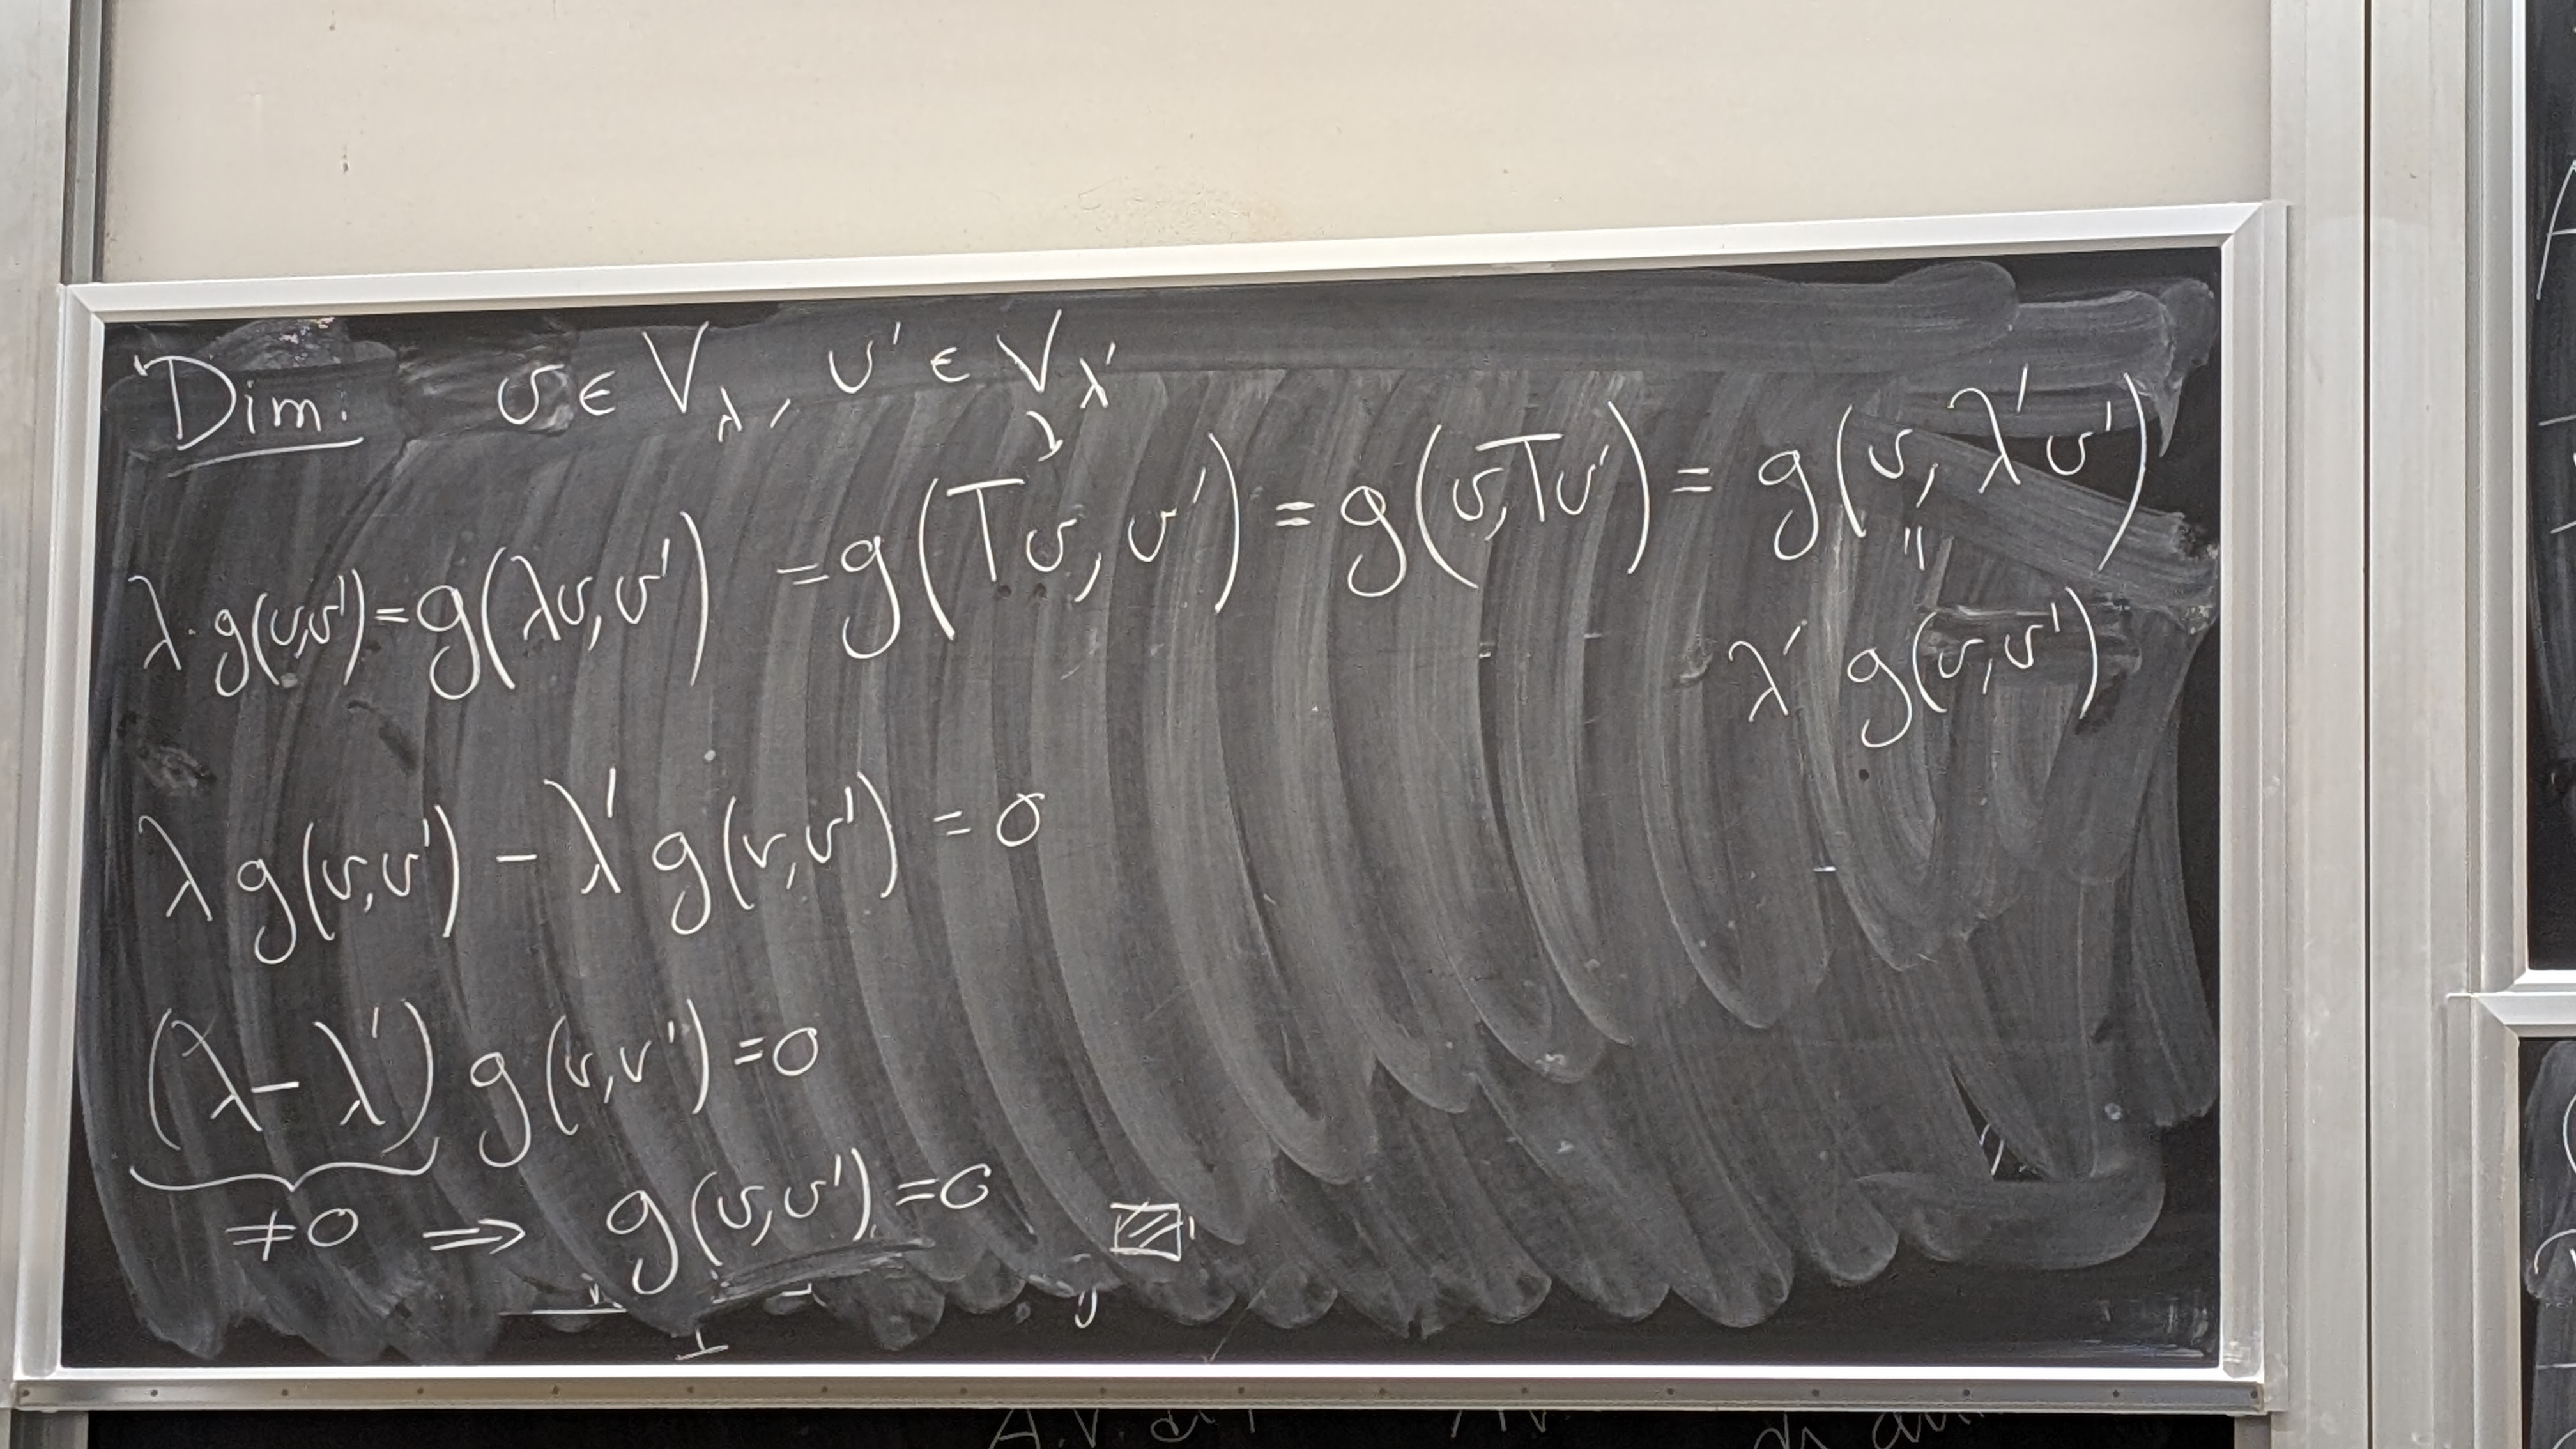 Dim. v ∈ V_λ, v' ∈ V_λ'
λ · g(v,v') = g(λv, v') = g(Tv, v') = g(v,Tv') = g(v, λ'v')
"
λ' g(v,v')
λ g(v,v') - λ' g(v,v') = 0
(λ - λ') g(v,v') = 0
≠ 0 ⟹ g(v,v') = 0